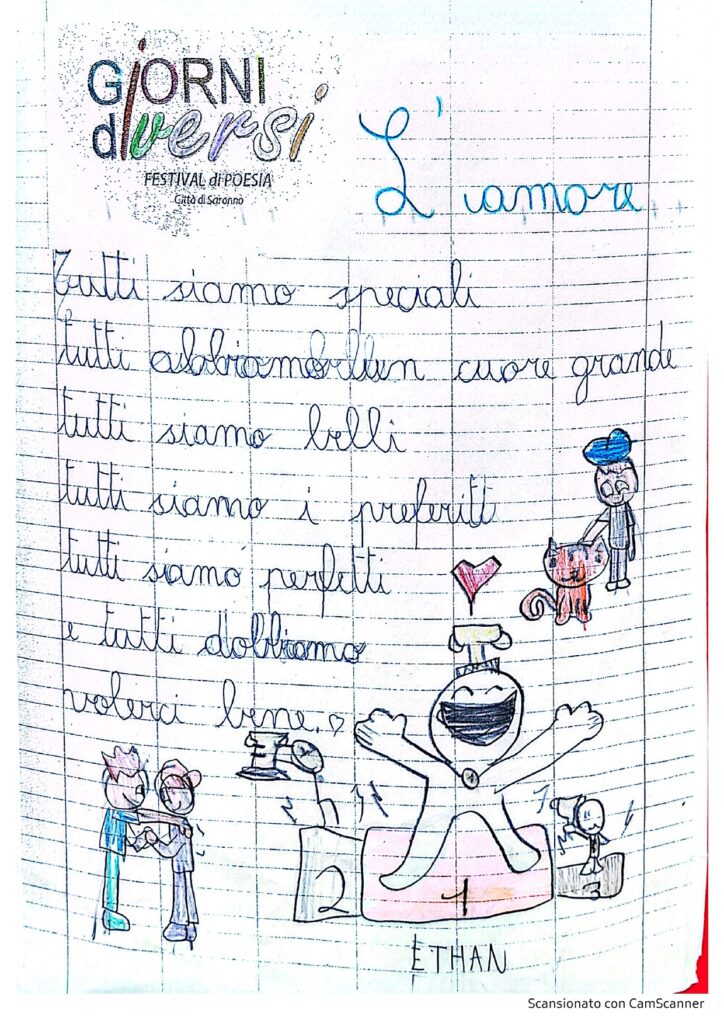 GiORNI
diversi
FESTIVAL di POESIA
Città di Saronno
L'amore
Tutti siamo speciali
tutti abbiamo un cuore grande
tutti siamo belli
tutti siamo i preferiti
tutti siamo perfetti
e tutti dobbiamo
volerci bene.
2
1
3
ETHAN
Scansionato con CamScanner